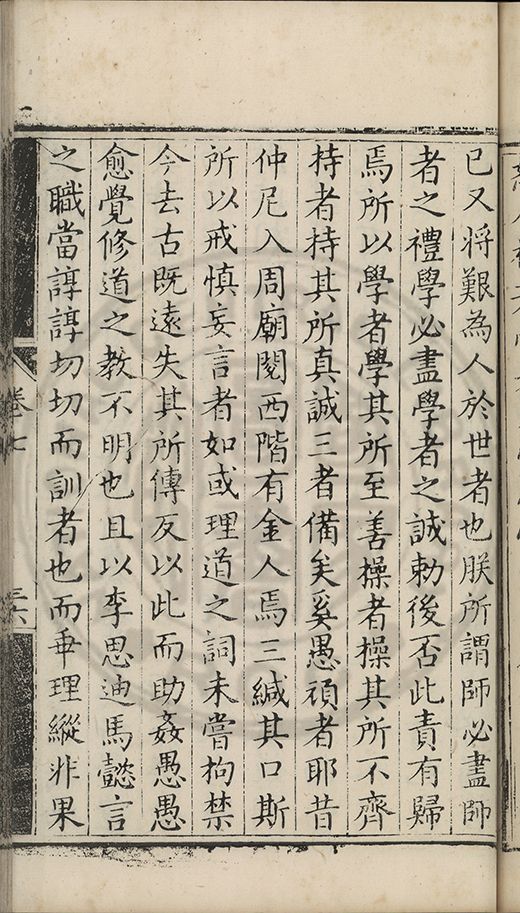 已又将艱為人於世者也朕所謂師必盡師
者之禮學必盡學者之誠勅後否此責有歸
焉所以學者學其所至善操者操其所不齊
持者持其所真誠三者備矣奚愚頑者耶昔
仲尼入周廟閱西階有金人焉三緘其口斯
所以戒慎妄言者如或理道之詞未嘗拘禁
今去古既遠失其所傳反以此而助姦愚愚
愈覺修道之教不明也且以李思迪馬懿言
之職當諄諄切切而訓者也而乖理縱非果
卷七
三六